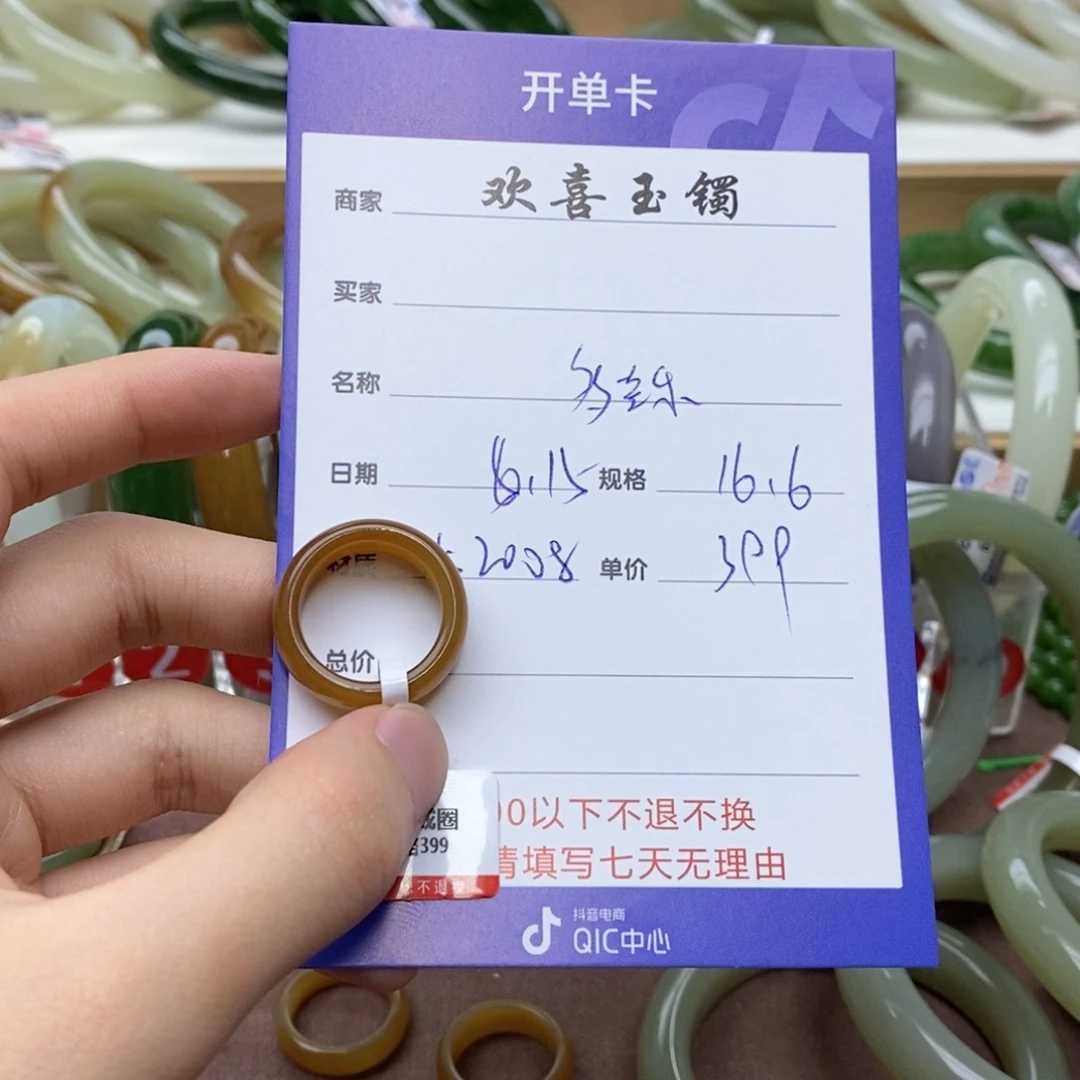 开单卡
商家 欢喜玉镯
买家
名称
日期 8.15 规格 16.6
材质 2008 单价 399
总价
00以下不退不换
请填写七天无理由
戒圈
399
不退换
抖音电商
QIC中心